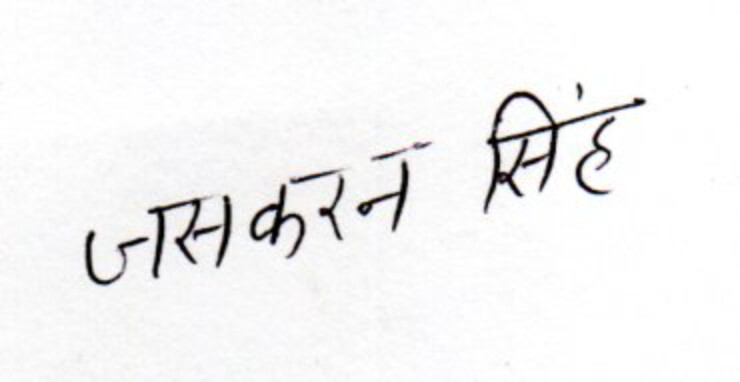 जसकरन सिंह